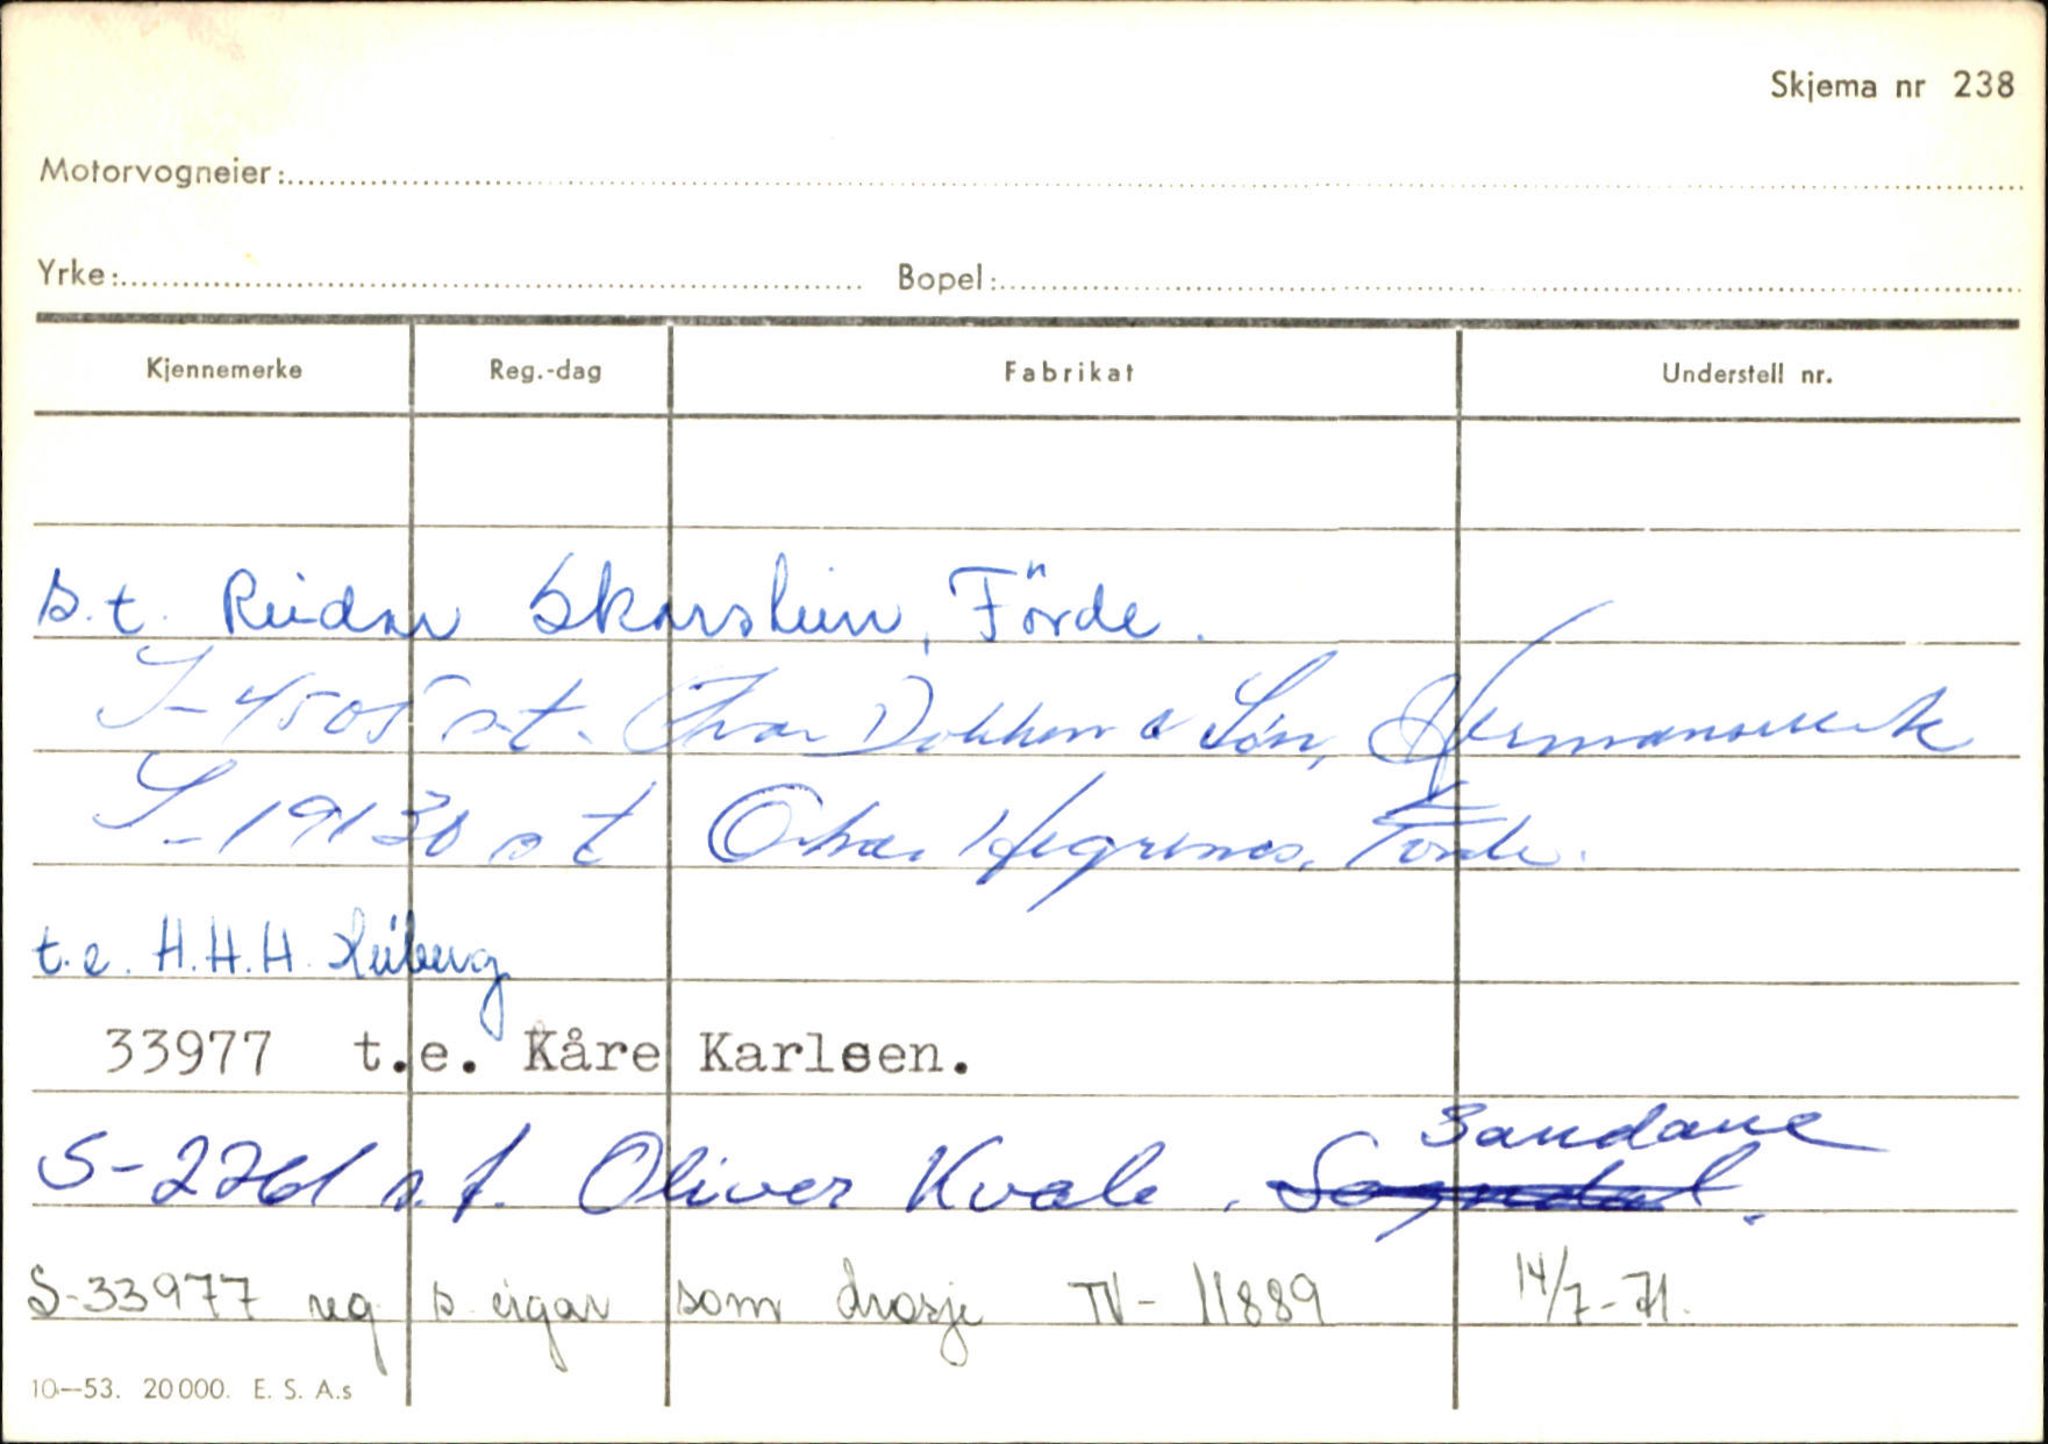 Skjema nr 238
Motorvogneier:
Yrke: Bopel:
Kjennemerke Reg.-dag Fabrikat Understell nr.
s.t. Reidar Skarstein, Förde.
S-4505 s.t. Ivar Dokken & Søn, Hermansverk
S-19130 s t Hegrenes, Förde.
t.e. H.H.H. Heiberg
33977 t.e. Kåre Karlsen.
Sandane
S-2261 s.t. Oliver Kvale, Sogndal.
S-33977 reg s. eigar som drosje TV-11889 14/7-71.
10-53. 20000. E. S. A.s